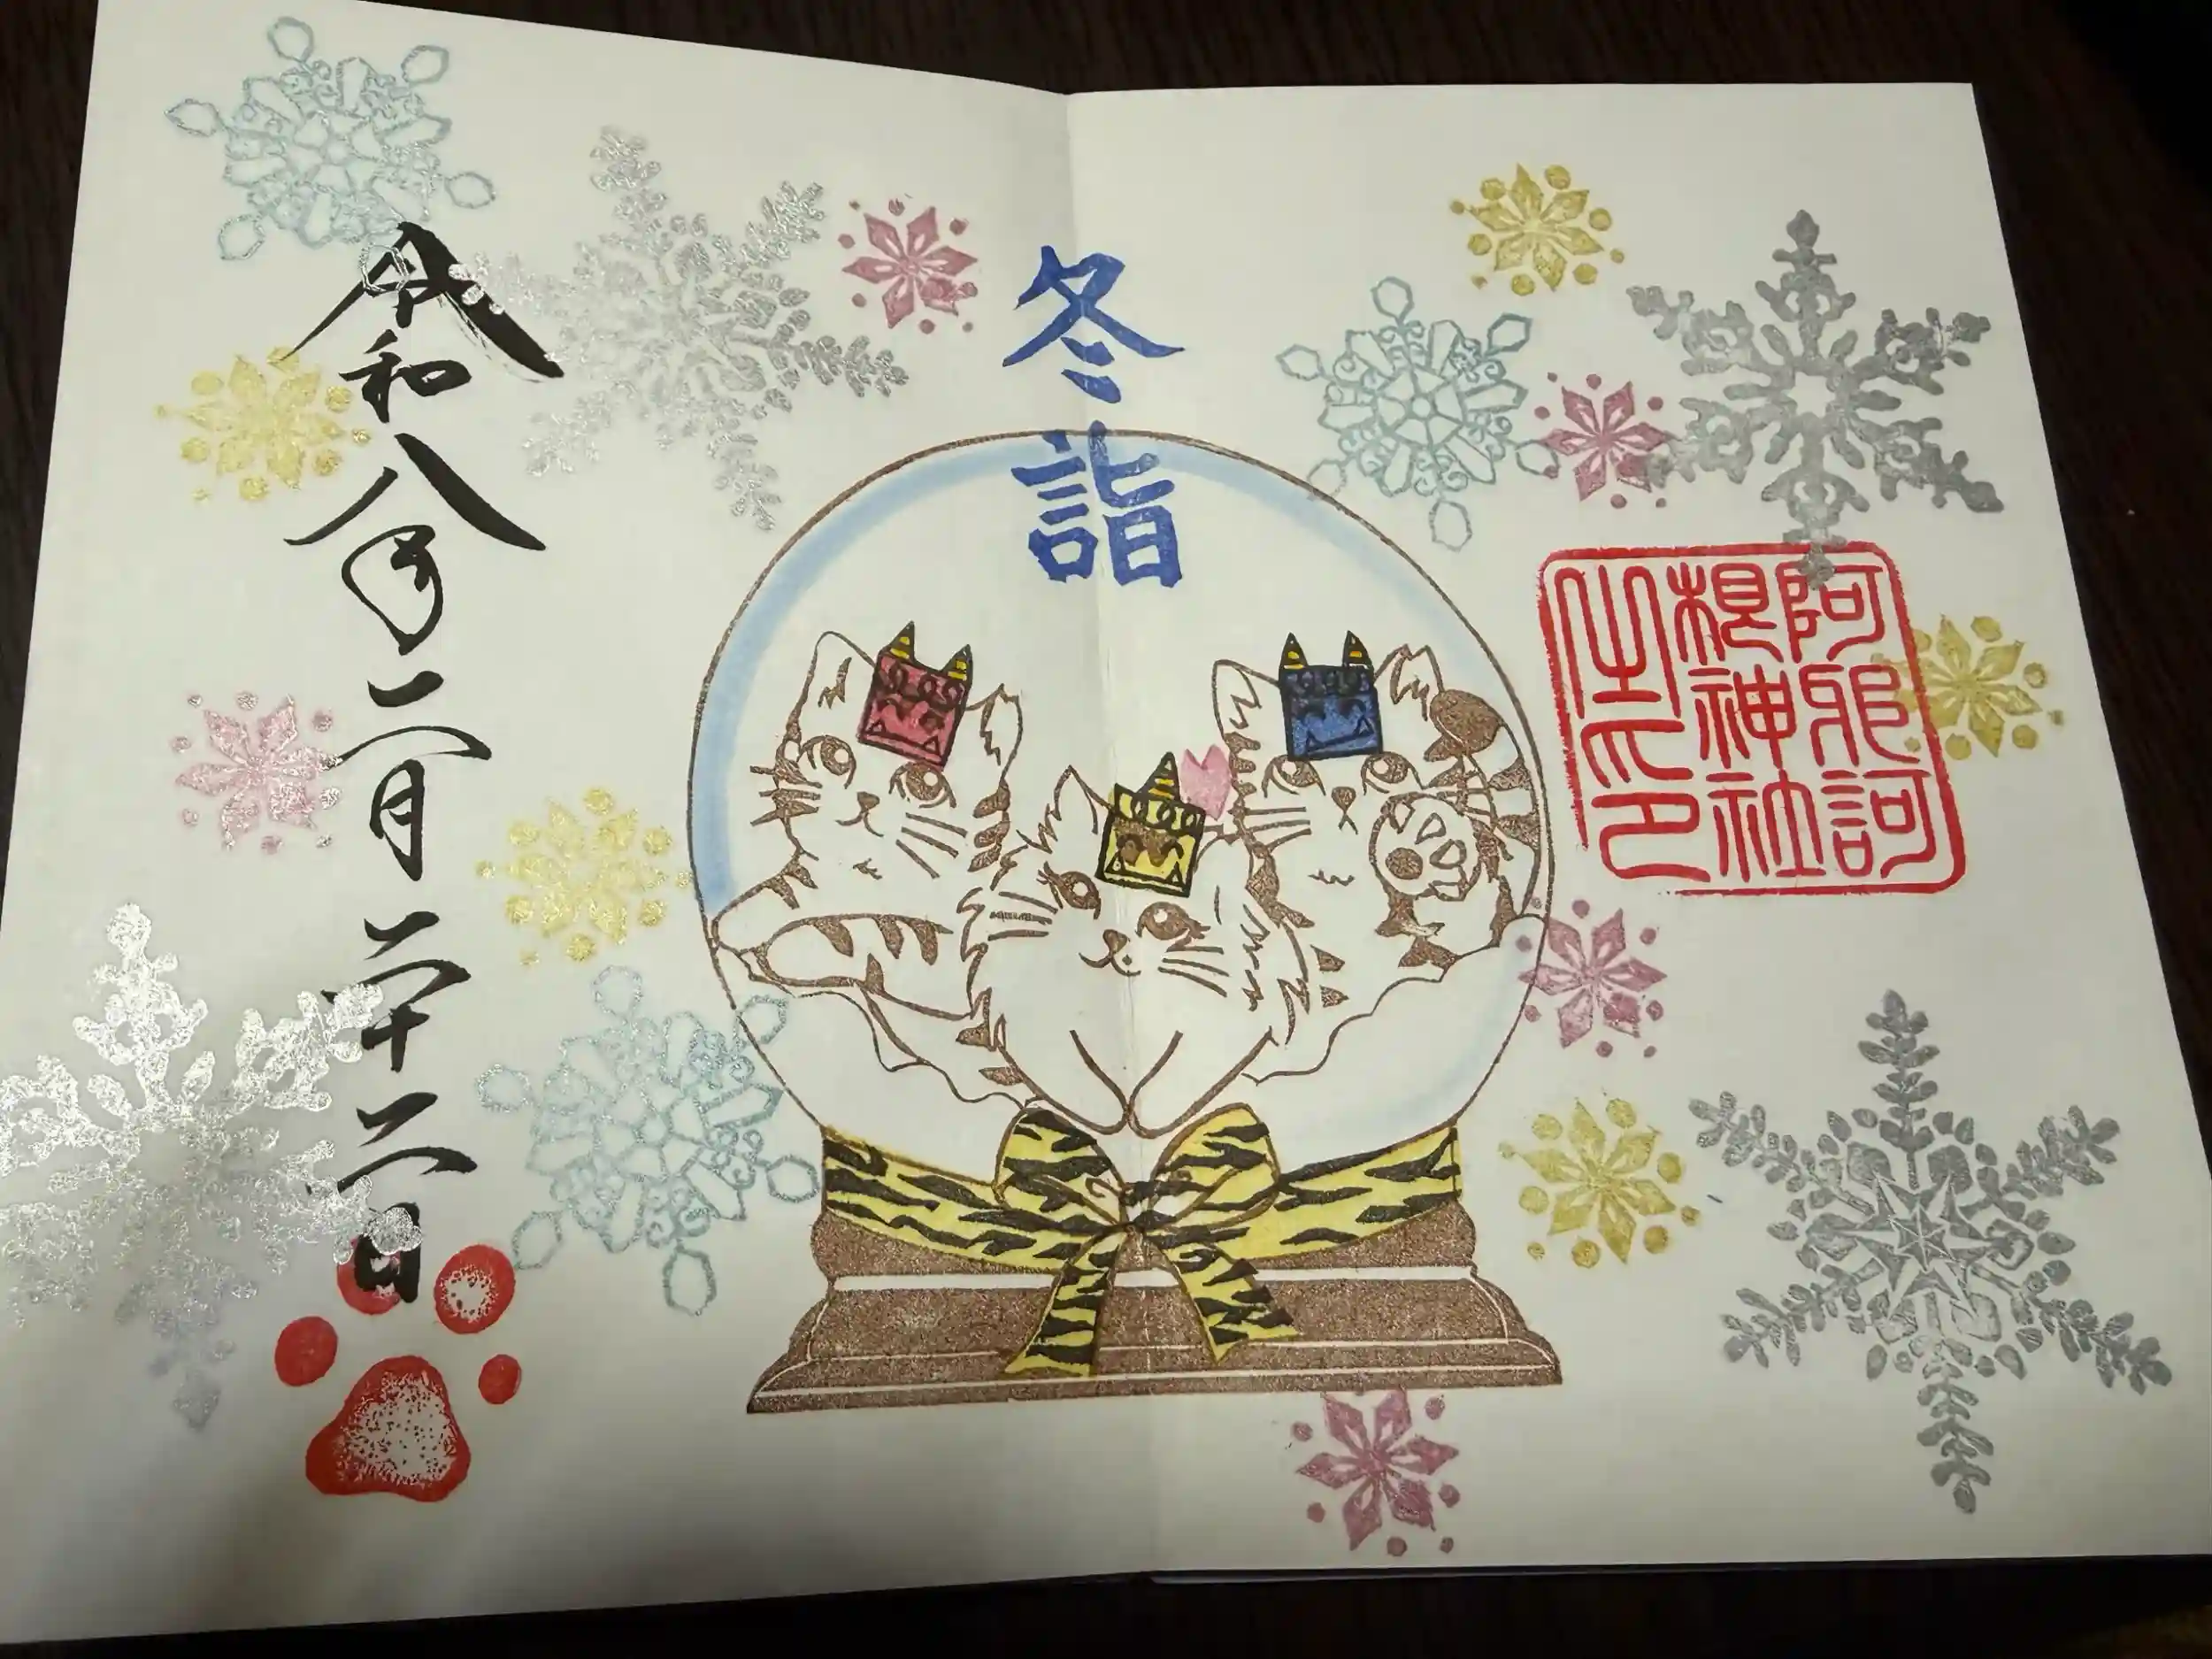 阿邪訶
根神社
之印
冬詣
令和八年二月二十二日